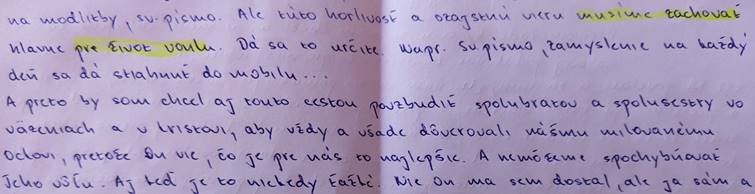 na modlitby, sv. písmo. Ale túto horlivosť a ozajstnú vieru musíme zachovať
hlavne pre život vonku. Dá sa to určite. Napr. Sv písmo, zamyslenie na každý
deň sa dá stiahnuť do mobilu...
A preto by som chcel aj touto cestou povzbudiť spolubratov a spolusestry vo
väzeniach a v Kristovi, aby vždy a všade dôverovali nášmu milovanému
Otcovi, pretože On vie, čo je pre nás to najlepšie. A nemôžeme spochybňovať
Jeho vôľu. Aj keď je to niekedy ťažké. Nie On ma sem dostal, ale ja sám a